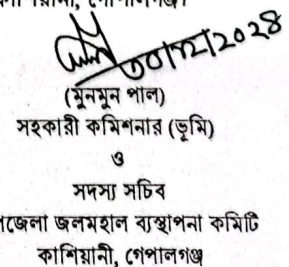 ৩০।১২।২০২৪
(মুনমুন পাল)
সহকারী কমিশনার (ভূমি)
ও
সদস্য সচিব
জেলা জলমহাল ব্যবস্থাপনা কমিটি
কাশিয়ানী, গোপালগঞ্জ